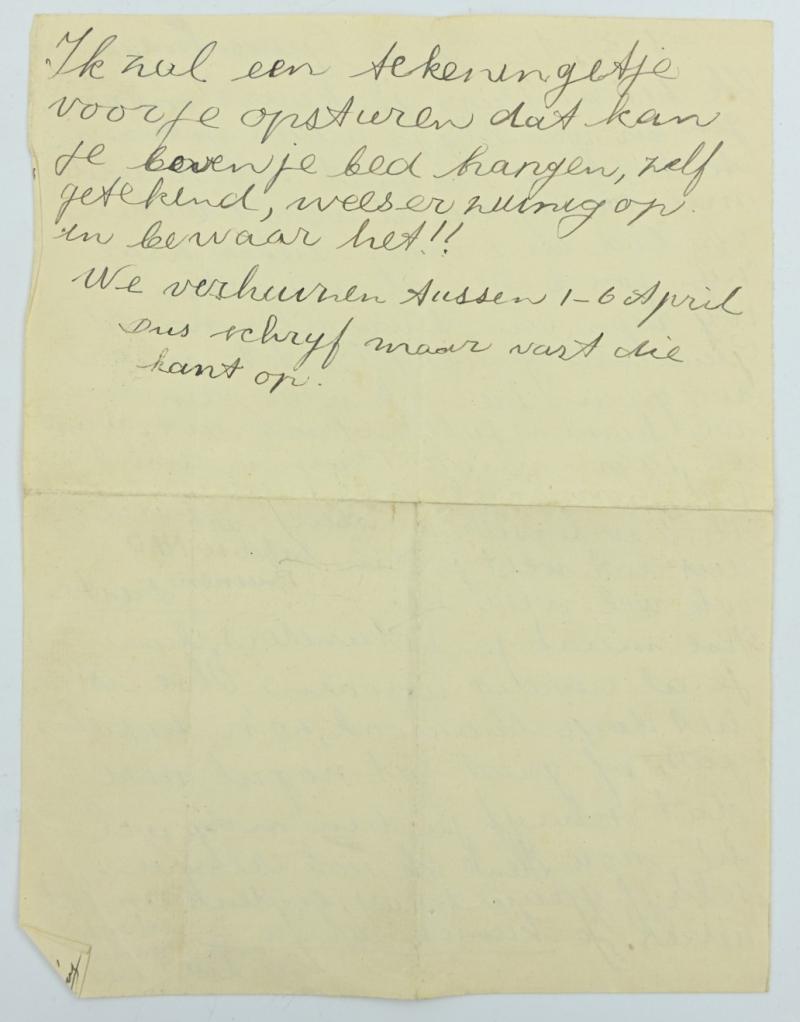 Ik zal een tekeningetje
voor je opsturen dat kan
je boven je bed hangen, zelf
getekend, wees er zuinig op.
en bewaar het!!
We verhuizen tussen 1-6 April
Dus schryf maar vast die
kant op.